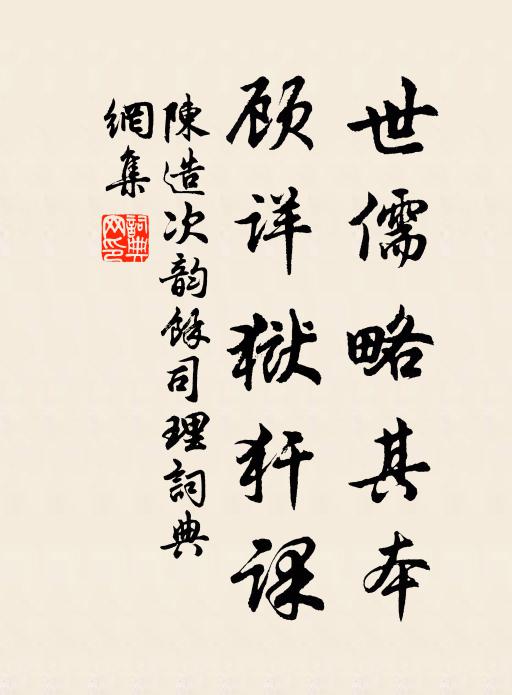 世儒略其本
顾详獄犴课
陳造次韵餘司理詞典
網集
詞典網印